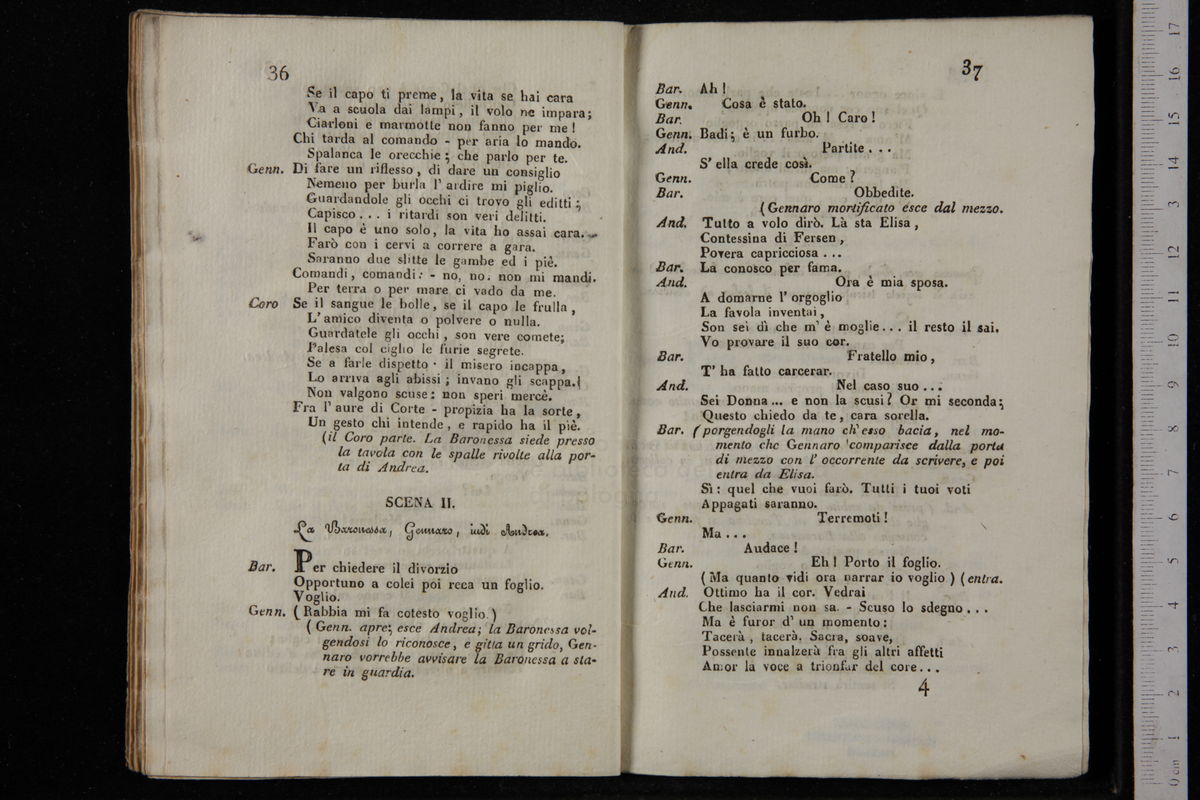 36
Se il capo ti preme, la vita se hai cara
Va a scuola dai lampi, il volo ne impara;
Ciarloni e marmotte non fanno per me !
Chi tarda al comando - per aria lo mando.
Spalanca le orecchie ; che parlo per te.
Genn. Di fare un riflesso, di dare un consiglio
Nemeno per burla l' ardire mi piglio.
Guardandole gli occhi ci trovo gli editti ;
Capisco . . . i ritardi son veri delitti.
Il capo è uno solo, la vita ho assai cara.
Farò con i cervi a correre a gara.
Saranno due slitte le gambe ed i piè.
Comandi, comandi: - no, no. non mi mandi.
Per terra o per mare ci vado da me.
Coro Se il sangue le bolle, se il capo le frulla,
L' amico diventa o polvere o nulla.
Guardatele gli occhi, son vere comete;
Palesa col ciglio le furie segrete.
Se a farle dispetto · il misero incappa,
Lo arriva agli abissi ; invano gli scappa.
Non valgono scuse: non speri mercè.
Fra l' aure di Corte - propizia ha la sorte,
Un gesto chi intende, e rapido ha il piè.
(il Coro parte. La Baronessa siede presso
la tavola con le spalle rivolte alla por-
ta di Andrea.
SCENA II.
La Baronessa, Gennaro, indi Andrea.
Bar. Per chiedere il divorzio
Opportuno a colei poi reca un foglio.
Voglio.
Genn. ( Rabbia mi fa cotesto voglio. )
( Genn. apre; esce Andrea; la Baronessa vol-
gendosi lo riconosce, e gitta un grido, Gen-
naro vorrebbe avvisare la Baronessa a sta-
re in guardia.
37
Bar. Ah !
Genn. Cosa è stato.
Bar. Oh ! Caro !
Genn. Badi; è un furbo.
And. Partite . . .
S' ella crede così.
Genn. Come ?
Bar. Obbedite.
(Gennaro mortificato esce dal mezzo.
And. Tutto a volo dirò. Là sta Elisa,
Contessina di Fersen,
Povera capricciosa . . .
Bar. La conosco per fama.
And. Ora è mia sposa.
A domarne l' orgoglio
La favola inventai,
Son sei dì che m' è moglie. . . il resto il sai.
Vo provare il suo cor.
Bar. Fratello mio,
T' ha fatto carcerar.
And. Nel caso suo . . .
Sei Donna ... e non la scusi? Or mi seconda;
Questo chiedo da te, cara sorella.
Bar. (porgendogli la mano ch' esso bacia, nel mo-
mento che Gennaro comparisce dalla porta
di mezzo con l' occorrente da scrivere, e poi
entra da Elisa.
Sì: quel che vuoi farò. Tutti i tuoi voti
Appagati saranno.
Genn. Terremoti !
Ma . . .
Bar. Audace !
Genn. Eh ! Porto il foglio.
( Ma quanto vidi ora narrar io voglio ) (entra.
And. Ottimo ha il cor. Vedrai
Che lasciarmi non sa. - Scuso lo sdegno . . .
Ma è furor d' un momento :
Tacerà, tacerà. Sacra, soave,
Possente innalzerà fra gli altri affetti
Amor la voce a trionfar del core. . .
4